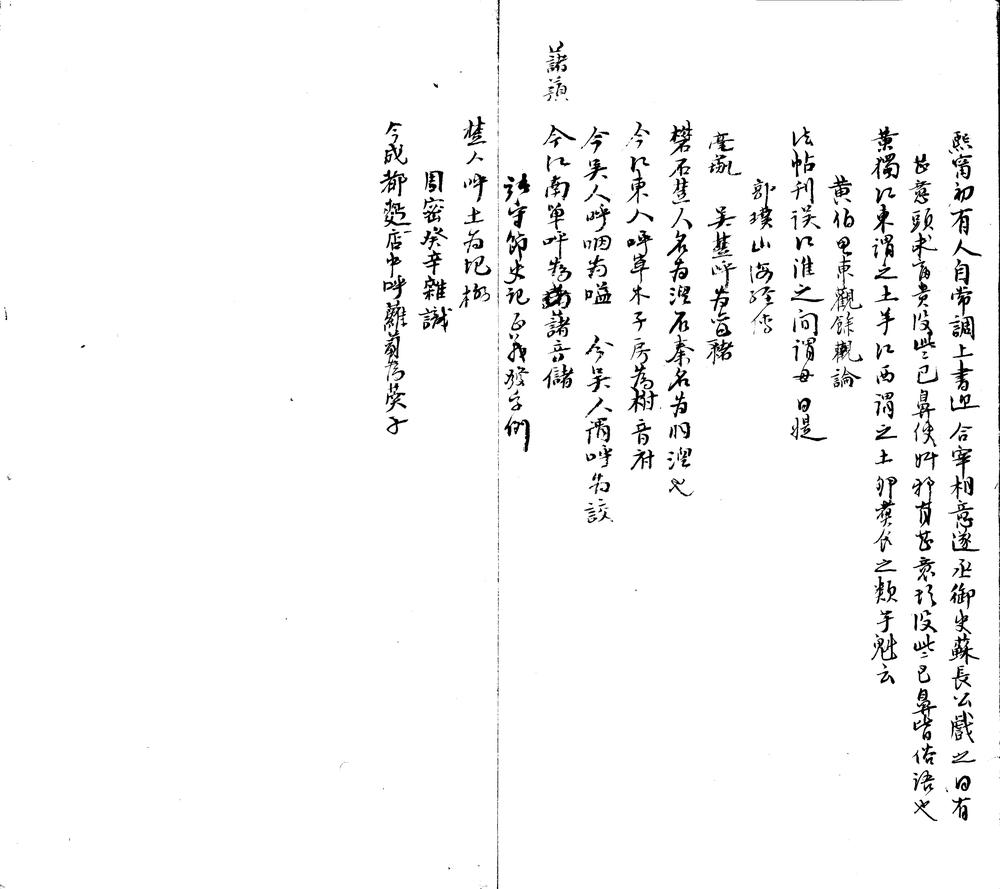 熙甯初有人自常調上書迎合宰相意遂丞御史蘇長公戲之曰有
甚意頭求富貴沒些巴鼻便奸邪有甚意頭沒些巴鼻皆俗語也
黃獨江東謂之土芋江西謂之土卵蒸食之類芋魁云
黃伯思東觀餘論
法帖刊误江淮之间謂母曰媞
郭璞山海經傳
吴楚呼为
礬石楚人名为涅石秦名为羽涅也
今江東人呼草木子房為柎音府
今吴人呼咽为嗌 今吴人謂呼为
諸蕷
今江南單呼為藷音儲
張守節史记正義發字例
楚人呼土为圯橋
周密癸辛雜識
今成都麪店中呼蘿蔔為葖子